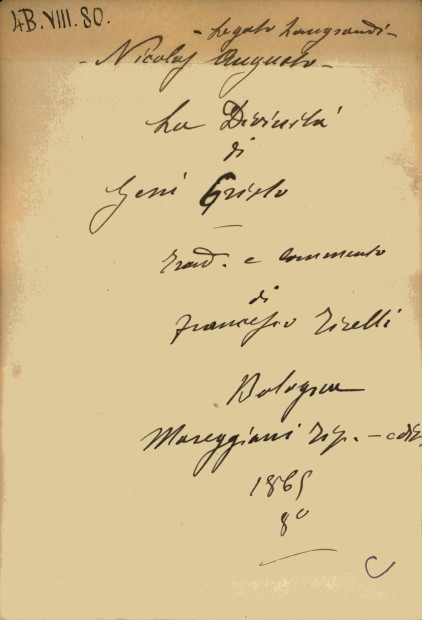 4B.VIII.80.
- Legato Langrandi -
- Nicolas Augusto -
La Divinità
di
Gesù Cristo
Trad. e commento
di
Francesco Tirelli
Bologna
Mareggiani Tip. - edit.
1865
8º
C